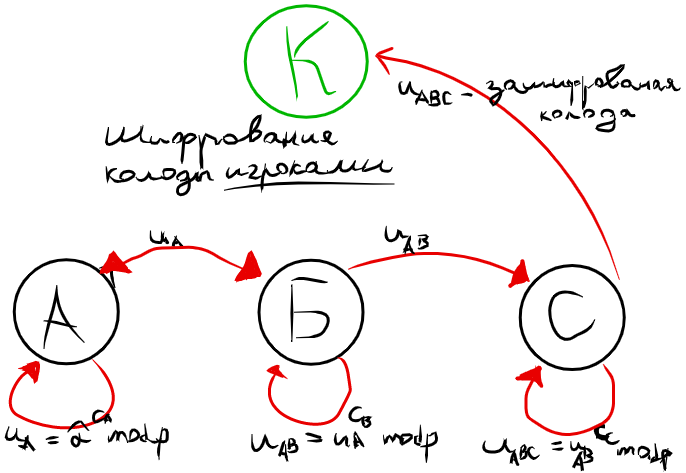 К
u_ABC - зашифрованая
колода
Шифрования
колоды игроками
u_A
u_AB
А
Б
С
u_A = α̂^{C_A} mod p
u_AB = u_A^{C_B} mod p
u_ABC = u_AB^{C_C} mod p